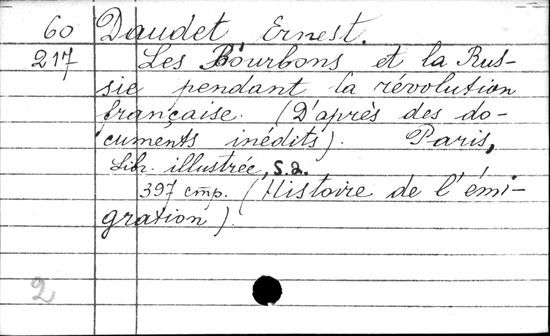 60 Daudet Ernest.
217 Les Bourbons et la Rus-
sie pendant la révolution
française. (D'après des do-
cuments inédits). Paris,
Libr. illustrée, s.a.
397 cmp. (Histoire de l'émi-
gration).
2